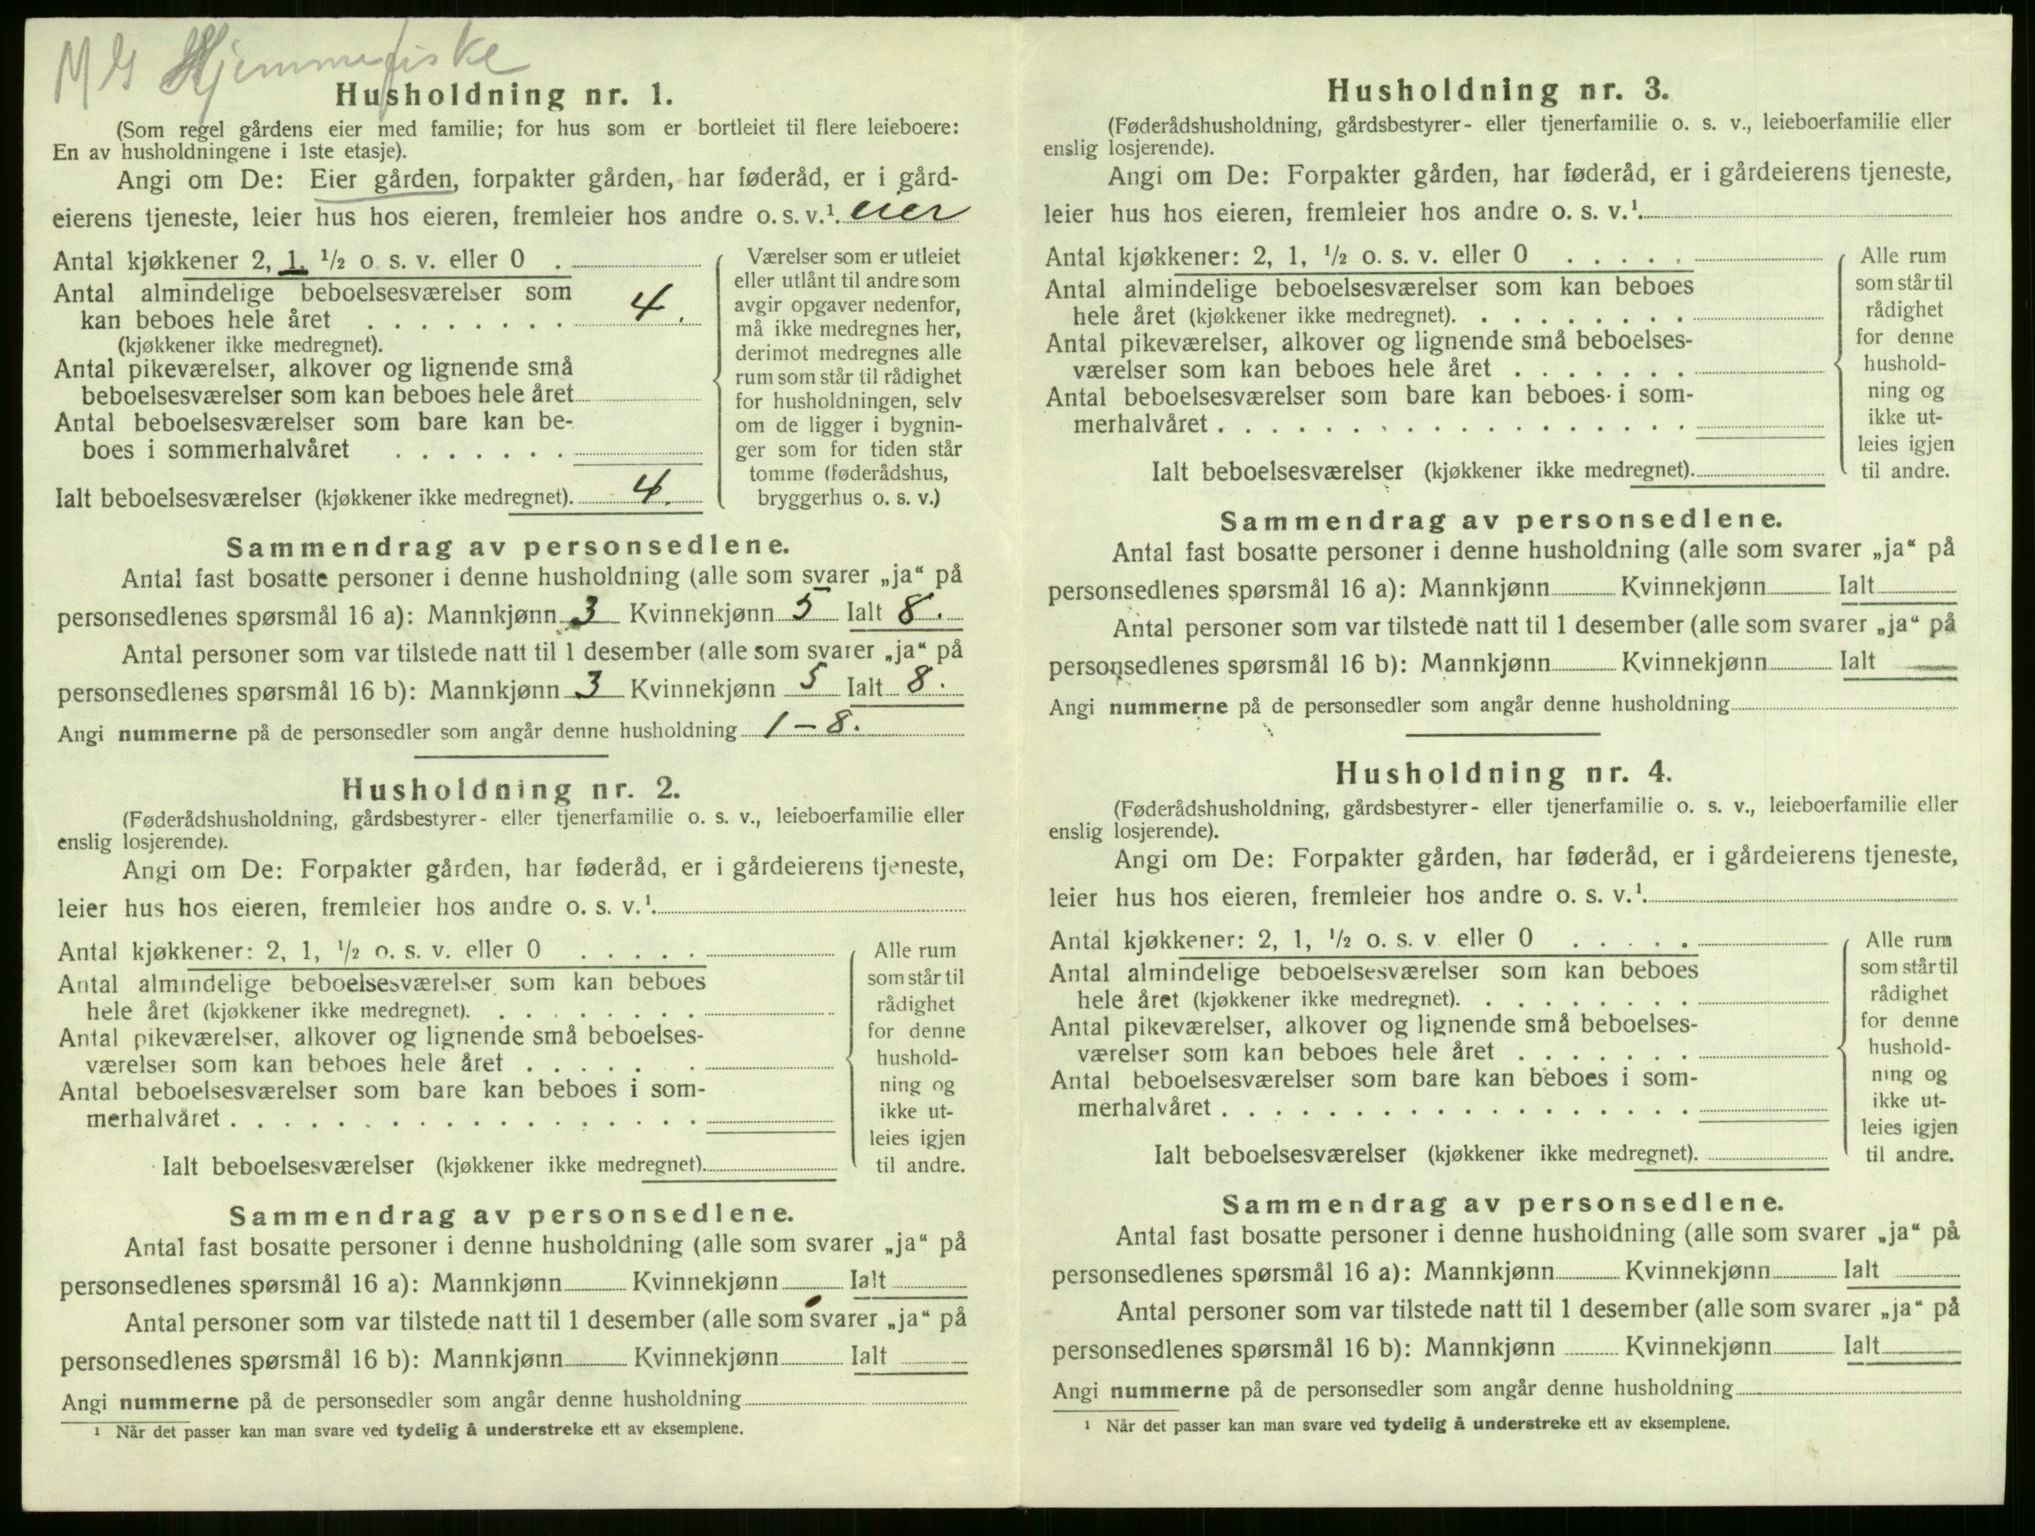 M G Hjemmefiske
Husholdning nr. 1.
(Som regel gårdens eier med familie; for hus som er bortleiet til flere leieboere:
En av husholdningene i 1ste etasje).
Angi om De: Eier gården, forpakter gården, har føderåd, er i gård-
eierens tjeneste, leier hus hos eieren, fremleier hos andre o. s. v.¹. eier
Antal kjøkkener 2, 1, ½ o s. v. eller 0 .
Antal almindelige beboelsesværelser som
kan beboes hele året . . . . . . . . 4.
(kjøkkener ikke medregnet).
Antal pikeværelser, alkover og lignende små
beboelsesværelser som kan beboes hele året
Antal beboelsesværelser som bare kan be-
boes i sommerhalvåret . . . . . . .
Ialt beboelsesværelser (kjøkkener ikke medregnet). 4.
Værelser som er utleiet
eller utlånt til andre som
avgir opgaver nedenfor,
må ikke medregnes her,
derimot medregnes alle
rum som står til rådighet
for husholdningen, selv
om de ligger i bygnin-
ger som for tiden står
tomme (føderådshus,
bryggerhus o. s. v.)
Sammendrag av personsedlene.
Antal fast bosatte personer i denne husholdning (alle som svarer „ja“ på
personsedlenes spørsmål 16 a): Mannkjønn 3 Kvinnekjønn 5 Ialt 8.
Antal personer som var tilstede natt til 1 desember (alle som svarer „ja“ på
personsedlenes spørsmål 16 b): Mannkjønn 3 Kvinnekjønn 5 Ialt 8.
Angi nummerne på de personsedler som angår denne husholdning 1 – 8.
Husholdning nr. 2.
(Føderådshusholdning, gårdsbestyrer- eller tjenerfamilie o. s. v., leieboerfamilie eller
enslig losjerende).
Angi om De: Forpakter gården, har føderåd, er i gårdeierens tjeneste,
leier hus hos eieren, fremleier hos andre o. s. v.¹.
Antal kjøkkener: 2, 1, ½ o. s. v. eller 0 . . . . .
Antal almindelige beboelsesværelser som kan beboes
hele året (kjøkkener ikke medregnet). . . . . . . . .
Antal pikeværelser, alkover og lignende små beboelses-
værelser som kan beboes hele året . . . . . . .
Antal beboelsesværelser som bare kan beboes i som-
merhalvåret . . . . . . . . . . . . . . . . . .
Ialt beboelsesværelser (kjøkkener ikke medregnet).
Alle rum
som står til
rådighet
for denne
hushold-
ning og
ikke ut-
leies igjen
til andre.
Sammendrag av personsedlene.
Antal fast bosatte personer i denne husholdning (alle som svarer „ja“ på
personsedlenes spørsmål 16 a): Mannkjønn Kvinnekjønn Ialt
Antal personer som var tilstede natt til 1 desember (alle som svarer „ja“ på
personsedlenes spørsmål 16 b): Mannkjønn Kvinnekjønn Ialt
Angi nummerne på de personsedler som angår denne husholdning
¹ Når det passer kan man svare ved tydelig å understreke ett av eksemplene.
Husholdning nr. 3.
(Føderådshusholdning, gårdsbestyrer- eller tjenerfamilie o. s. v., leieboerfamilie eller
enslig losjerende).
Angi om De: Forpakter gården, har føderåd, er i gårdeierens tjeneste,
leier hus hos eieren, fremleier hos andre o. s. v.¹.
Antal kjøkkener: 2, 1, ½ o. s. v. eller 0 . . . . .
Antal almindelige beboelsesværelser som kan beboes
hele året (kjøkkener ikke medregnet). . . . . . . . .
Antal pikeværelser, alkover og lignende små beboelses-
værelser som kan beboes hele året . . . . . . .
Antal beboelsesværelser som bare kan beboes i som-
merhalvåret . . . . . . . . . . . . . . . . . .
Ialt beboelsesværelser (kjøkkener ikke medregnet).
Alle rum
som står til
rådighet
for denne
hushold-
ning og
ikke ut-
leies igjen
til andre.
Sammendrag av personsedlene.
Antal fast bosatte personer i denne husholdning (alle som svarer „ja“ på
personsedlenes spørsmål 16 a): Mannkjønn Kvinnekjønn Ialt
Antal personer som var tilstede natt til 1 desember (alle som svarer „ja“ på
personsedlenes spørsmål 16 b): Mannkjønn Kvinnekjønn Ialt
Angi nummerne på de personsedler som angår denne husholdning
Husholdning nr. 4.
(Føderådshusholdning, gårdsbestyrer- eller tjenerfamilie o. s. v., leieboerfamilie eller
enslig losjerende).
Angi om De: Forpakter gården, har føderåd, er i gårdeierens tjeneste,
leier hus hos eieren, fremleier hos andre o. s. v.¹.
Antal kjøkkener: 2, 1, ½ o. s. v eller 0 . . . . .
Antal almindelige beboelsesværelser som kan beboes
hele året (kjøkkener ikke medregnet). . . . . . . . .
Antal pikeværelser, alkover og lignende små beboelses-
værelser som kan beboes hele året . . . . . . .
Antal beboelsesværelser som bare kan beboes i som-
merhalvåret . . . . . . . . . . . . . . . . . .
Ialt beboelsesværelser (kjøkkener ikke medregnet).
Alle rum
som står til
rådighet
for denne
hushold-
ning og
ikke ut-
leies igjen
til andre.
Sammendrag av personsedlene.
Antal fast bosatte personer i denne husholdning (alle som svarer „ja“ på
personsedlenes spørsmål 16 a): Mannkjønn Kvinnekjønn Ialt
Antal personer som var tilstede natt til 1 desember (alle som svarer „ja“ på
personsedlenes spørsmål 16 b): Mannkjønn Kvinnekjønn Ialt
Angi nummerne på de personsedler som angår denne husholdning
¹ Når det passer kan man svare ved tydelig å understreke ett av eksemplene.